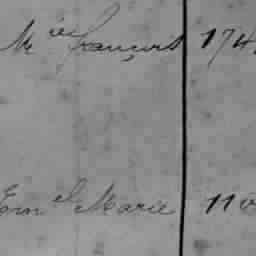 Mie françois 174
Emel Marie 110